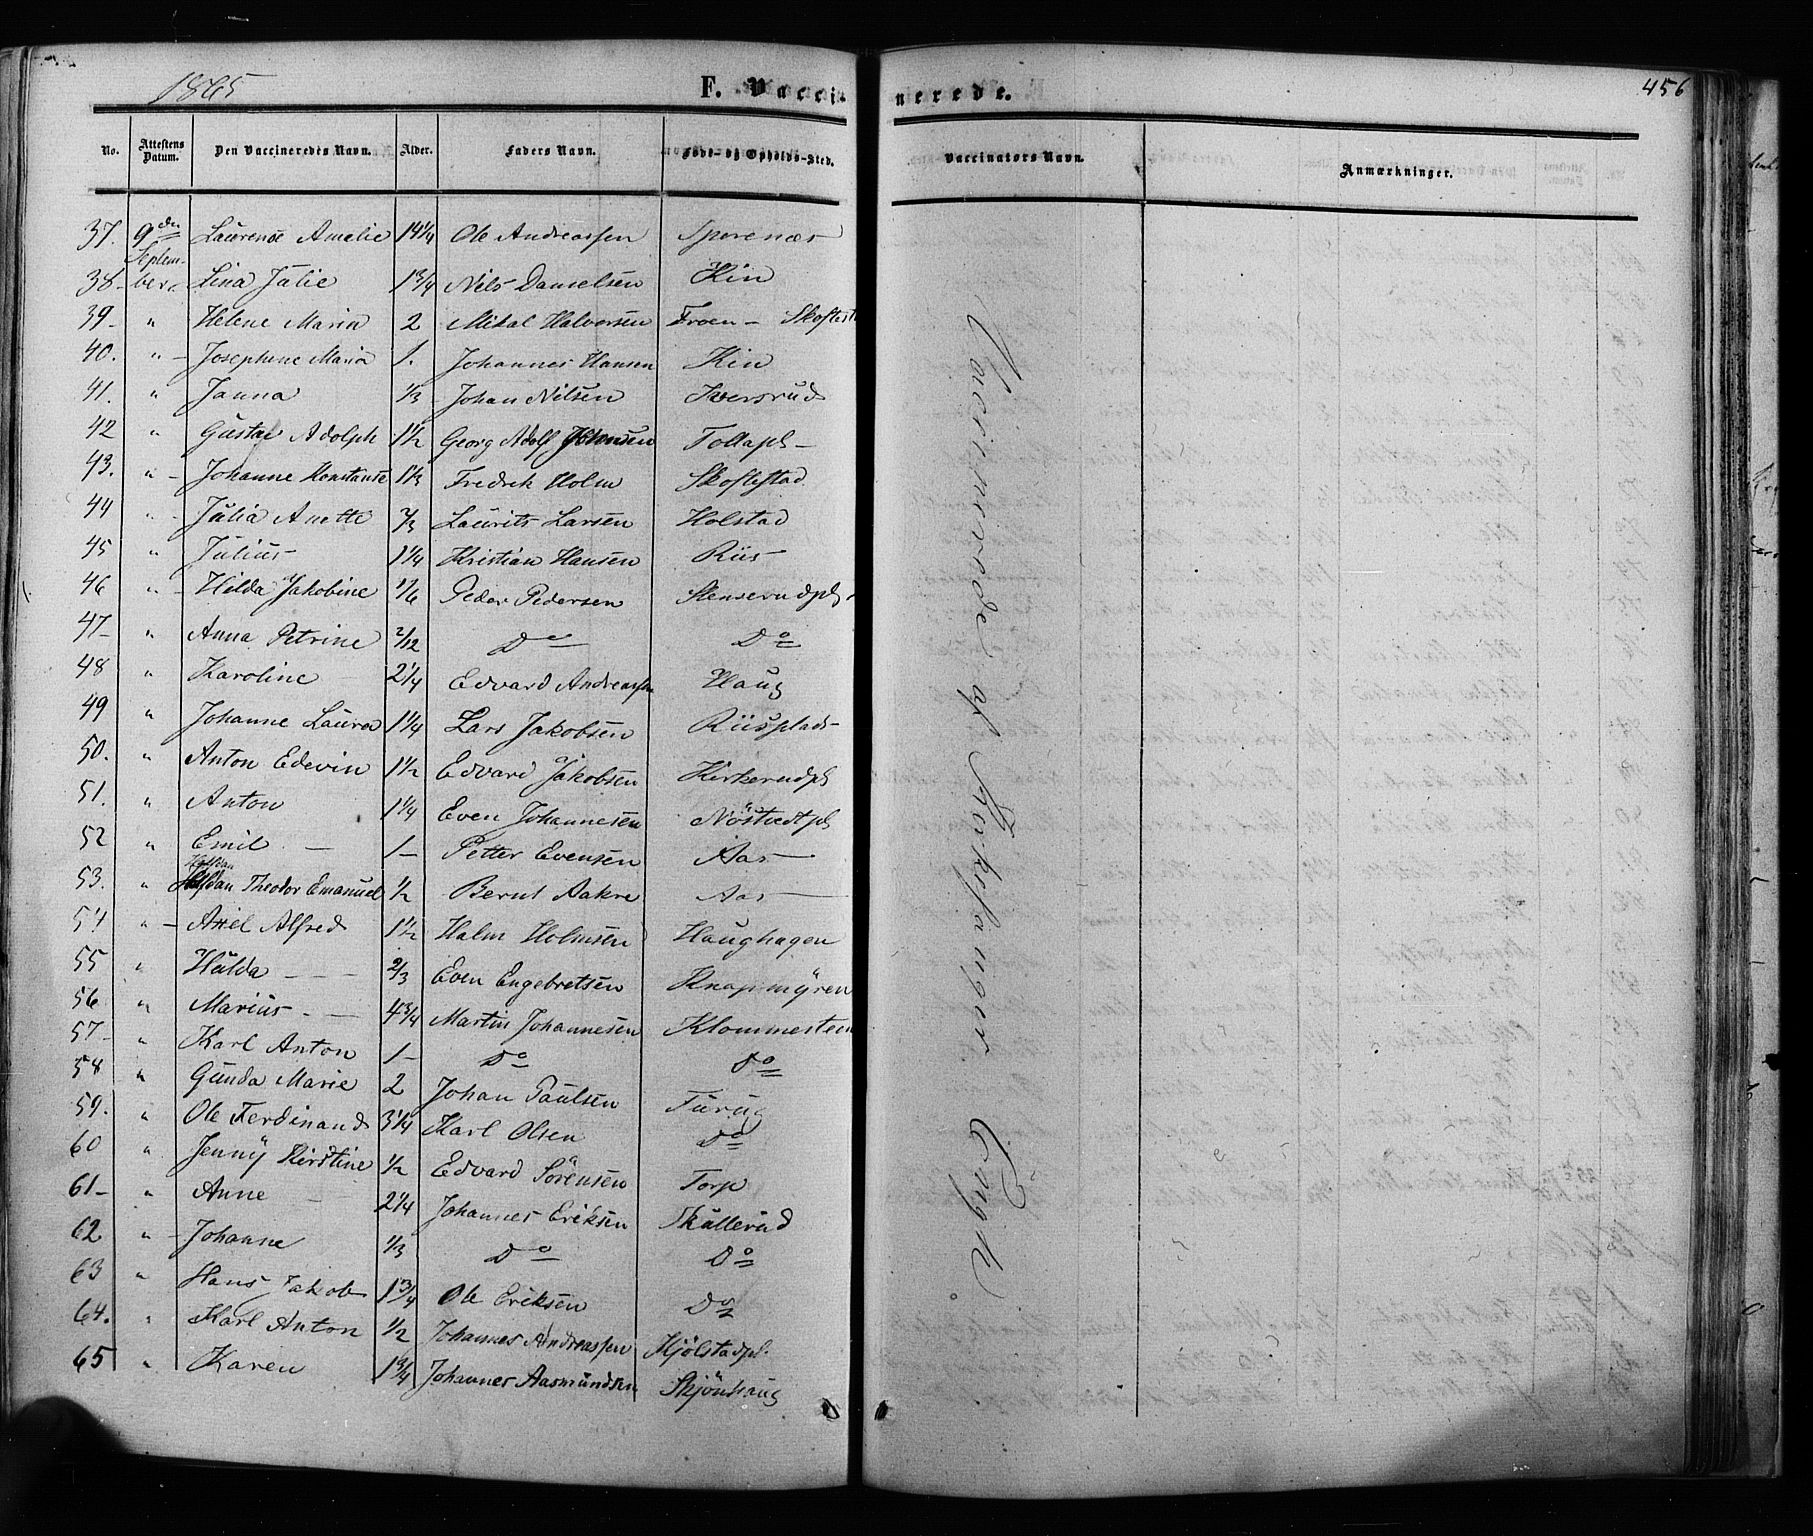 1865
F. Vaccinerede.
456
No. Attestens Datum. Den Vaccineredes Navn. Alder. Faders Navn. Føde- og Opholds-Sted. Vaccinators Navn. Anmærkninger.
37. 9den Septem- Laurense Amalie 14 1/4 Ole Andreassen Sporenæs
38- ber - Lina Julie 1 3/4 Nils Danielsen Kin
39- " Helene Maria 2 Mikal Halvorsen Froen - Skoftest
40. " - Josephine Maria 1. Johannes Hansen Kin
41. " Janna 1/3 Johan Nilsen Iversrud
42 " Gustav Adolph 1 1/2 Georg Adolf Johnsen Tollapl-
43. " - Johanne Konstanse 1 1/3 Fredrik Holm Skoftestad
44 " - Julia Anette 2/3 Laurits Larsen Holstad
45 " Julius 1 1/4 Kristian Hansen Riis
46 " - Hilda Jakobine 1/6 Peder Pedersen Stenserudpl
47- " Anna Petrine 2/12 Do Do
48 " Karoline 2 1/4 Edvard Andreassen Haug
49 " Johanne Laura 1 1/4 Lars Jakobsen Riisplads-
50. " Anton Edevin 1 1/2 Edvard Jakobsen Kirkerudpl
51. " Anton 1 1/4 Even Johannesen Nöstvedtpl
52 " Emil - 1- Petter Evensen Aas -
53. " Halfdan Theodor Emanuel 1/2 Bernt Aakre Aas -
54 " - Axel Alfred 1 1/2 Halm Holmsen Haughagen
55 " Hulda - - - 2/3 Even Engebretsen Knapmÿren
56 " Marius - - 4 3/4 Martin Johannesen Klommesteen
57- " Karl Anton 1- Do Do
58 " Gunda Marie 2 Johan Paulsen Turug
59. " Ole Ferdinand 3 1/4 Karl Olsen Do
60 " Jennÿ Kirstine 1/2 Edvard Sörensen Torp
61- " Anne 2 1/4 Johannes Eriksen Skullerud
62 " - Johanne 1/3 Do Do
63 " Hans Jakob 1 3/4 Ole Eriksen Do
64. " Karl Anton 1/2 Johannes Andreassen Kjölstadpl.
65 " Karen 1 3/4 Johannes Aasmundsen Skjönhaug
Vaccinerede af Kirkesanger Ringh.